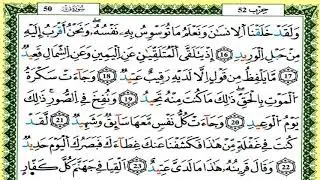 50 سورة ق حزب 52
وَلَقَدْ خَلَقْنَا ٱلْإِنسَٰنَ وَنَعْلَمُ مَا تُوَسْوِسُ بِهِۦ نَفْسُهُۥ وَنَحْنُ أَقْرَبُ إِلَيْهِ
مِنْ حَبْلِ ٱلْوَرِيدِ 16 إِذْ يَتَلَقَّى ٱلْمُتَلَقِّيَٰنِ عَنِ ٱلْيَمِينِ وَعَنِ ٱلشِّمَالِ قَعِيدٌ
17 مَّا يَلْفِظُ مِن قَوْلٍ إِلَّا لَدَيْهِ رَقِيبٌ عَتِيدٌ 18 وَجَآءَتْ سَكْرَةُ
ٱلْمَوْتِ بِٱلْحَقِّ ذَٰلِكَ مَا كُنتَ مِنْهُ تَحِيدُ 19 وَنُفِخَ فِى ٱلصُّورِ ذَٰلِكَ
يَوْمُ ٱلْوَعِيدِ 20 وَجَآءَتْ كُلُّ نَفْسٍ مَّعَهَا سَآئِقٌ وَشَهِيدٌ 21 لَّقَدْ
كُنتَ فِى غَفْلَةٍ مِّنْ هَٰذَا فَكَشَفْنَا عَنكَ غِطَآءَكَ فَبَصَرُكَ ٱلْيَوْمَ حَدِيدٌ
22 وَقَالَ قَرِينُهُۥ هَٰذَا مَا لَدَىَّ عَتِيدٌ 23 أَلْقِيَا فِى جَهَنَّمَ كُلَّ كَفَّارٍ